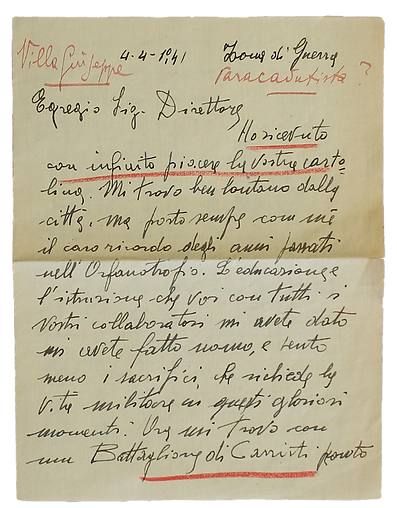 Villa Giuseppe 4-4-1941 Zona di Guerra
Paracadutista ?
Egregio Sig. Direttore
Ho ricevuto
con infinito piacere la vostra carto=
lina. Mi trovo ben lontano dalla
città, ma porto sempre con me
il caro ricordo degli anni passati
nell'Orfanotrofio. L'educazione e
l'istruzione che voi con tutti i
vostri collaboratori mi avete dato
mi avete fatto uomo, e sento
meno i sacrifici, che richiede la
vita militare in questi gloriosi
momenti. Ora mi trovo con
un Battaglione di Carristi pronto